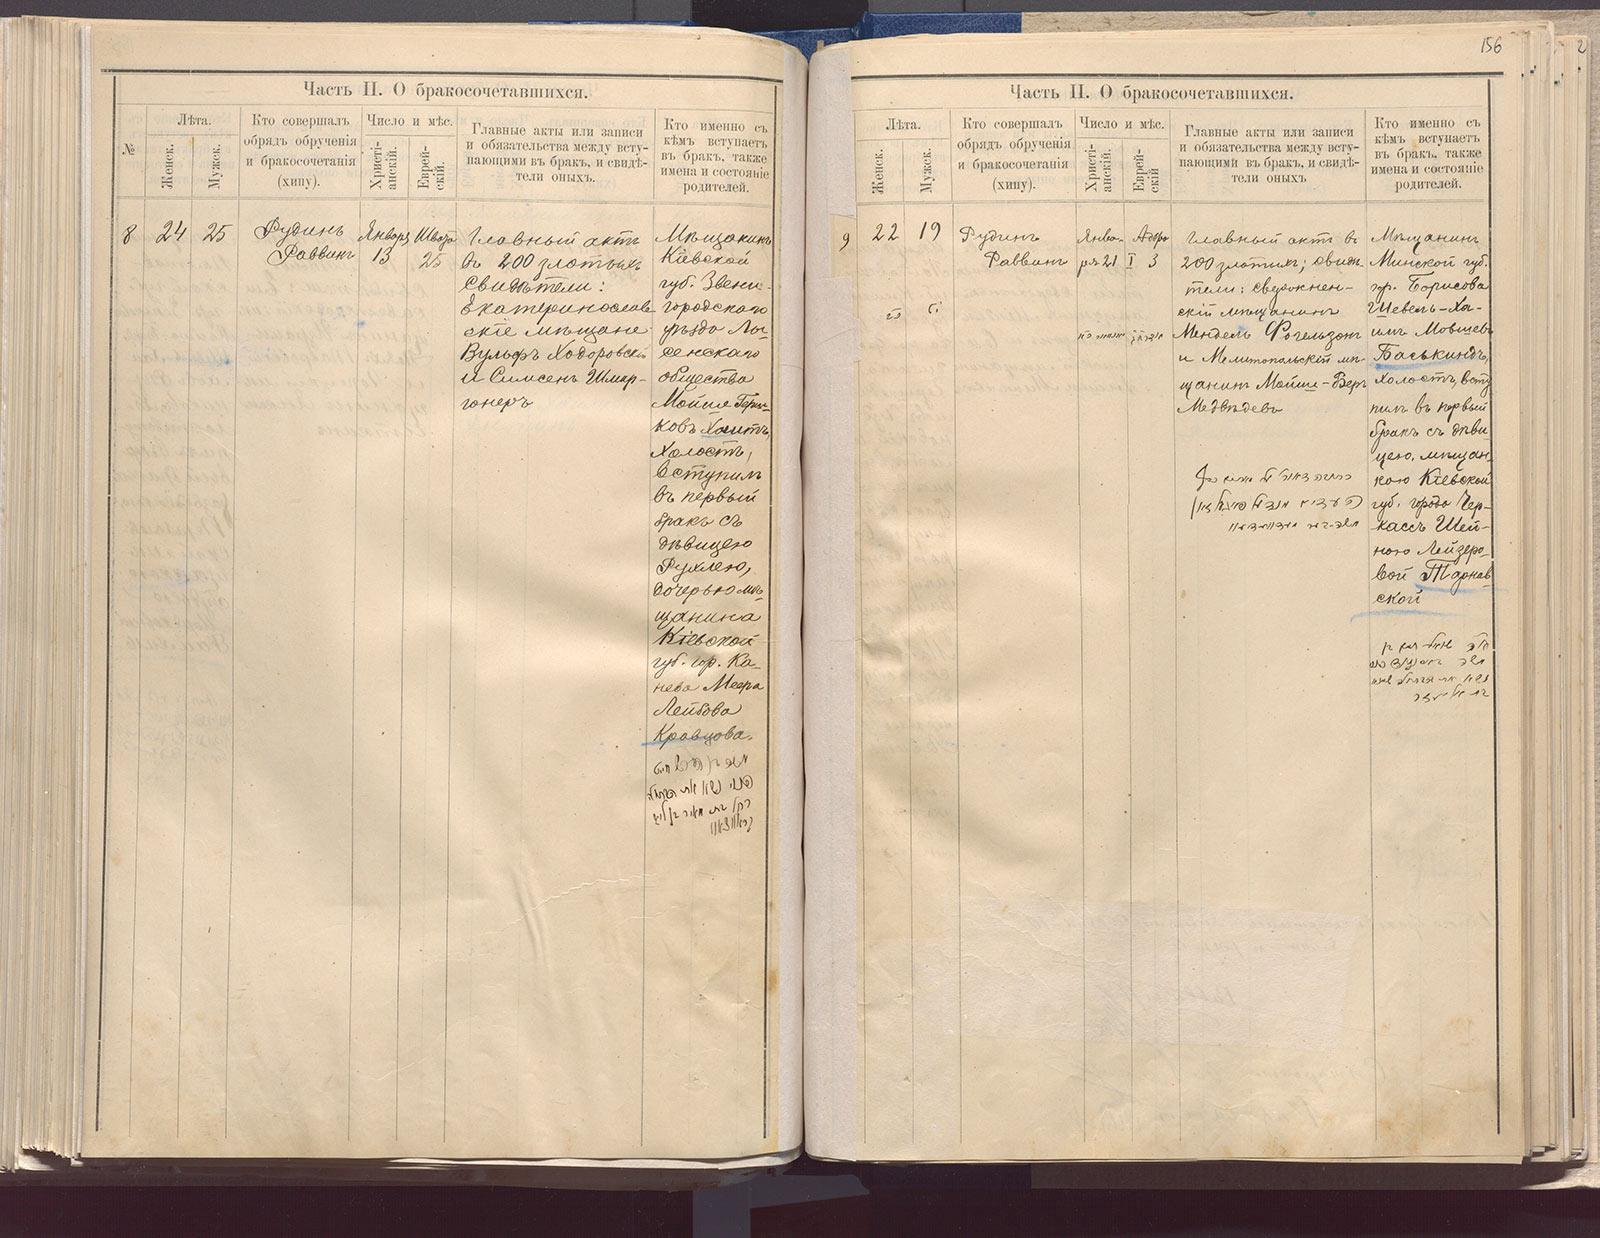 Часть II. О бракосочетавшихся.
№
Лѣта.
Женск.
Мужск.
Кто совершалъ
обрядъ обрученія
и бракосочетанія
(хипу).
Число и мѣс.
Христі-
анскій.
Еврей-
скій.
Главные акты или записи
и обязательства между всту-
пающими въ бракъ, и свидѣ-
тели оныхъ.
Кто именно съ
кѣмъ вступаетъ
въ бракъ, также
имена и состояніе
родителей.
8
24
25
Рудинъ
Раввинъ
Января
13
Швата
25
Главный актъ
въ 200 злотыхъ
Свидѣтели:
Екатеринослав-
скіе мѣщане
Вульфъ Ходоровскій
и Симсенъ Шмар-
гонеръ
Мѣщанинъ
Кіевской
губ. Звени-
городскаго
уѣзда Лы-
сенскаго
общества
Мойше Герш-
ковъ Хаитъ,
Холостъ,
вступилъ
въ первый
бракъ съ
дѣвицею
Рухлею,
дочерью мѣ-
щанина
Кіевской
губ. гор. Ка-
нева Меера
Лейбова
Кравцова.
156
Часть II. О бракосочетавшихся.
Лѣта.
Женск.
Мужск.
Кто совершалъ
обрядъ обрученія
и бракосочетанія
(хипу).
Число и мѣс.
Христі-
анскій.
Еврей-
скій
Главные акты или записи
и обязательства между всту-
пающими въ бракъ, и свидѣ-
тели оныхъ
Кто именно съ
кѣмъ вступаетъ
въ бракъ, также
имена и состояніе
родителей.
9
22
19
Рудинъ
Раввинъ
Янва-
ря 21
Адара
I 3
Главный актъ въ
200 злотыхъ; свидѣ-
тели:
скій мѣщанинъ
Мендель Фогельзонъ
и Мелитопольскій мѣ-
щанинъ Мойше-Беръ
Медвѣдевъ
Мѣщанинъ
Минской губ.
гор. Борисова
Шевель-Ха-
имъ Мовшевъ
Баськиндъ,
холостъ, всту
пилъ въ первый
бракъ съ дѣви-
цею, мѣщан-
кою Кіевской
губ. города Чер-
кассъ Шей-
ною Лейзеро-
вой Тарнав-
ской